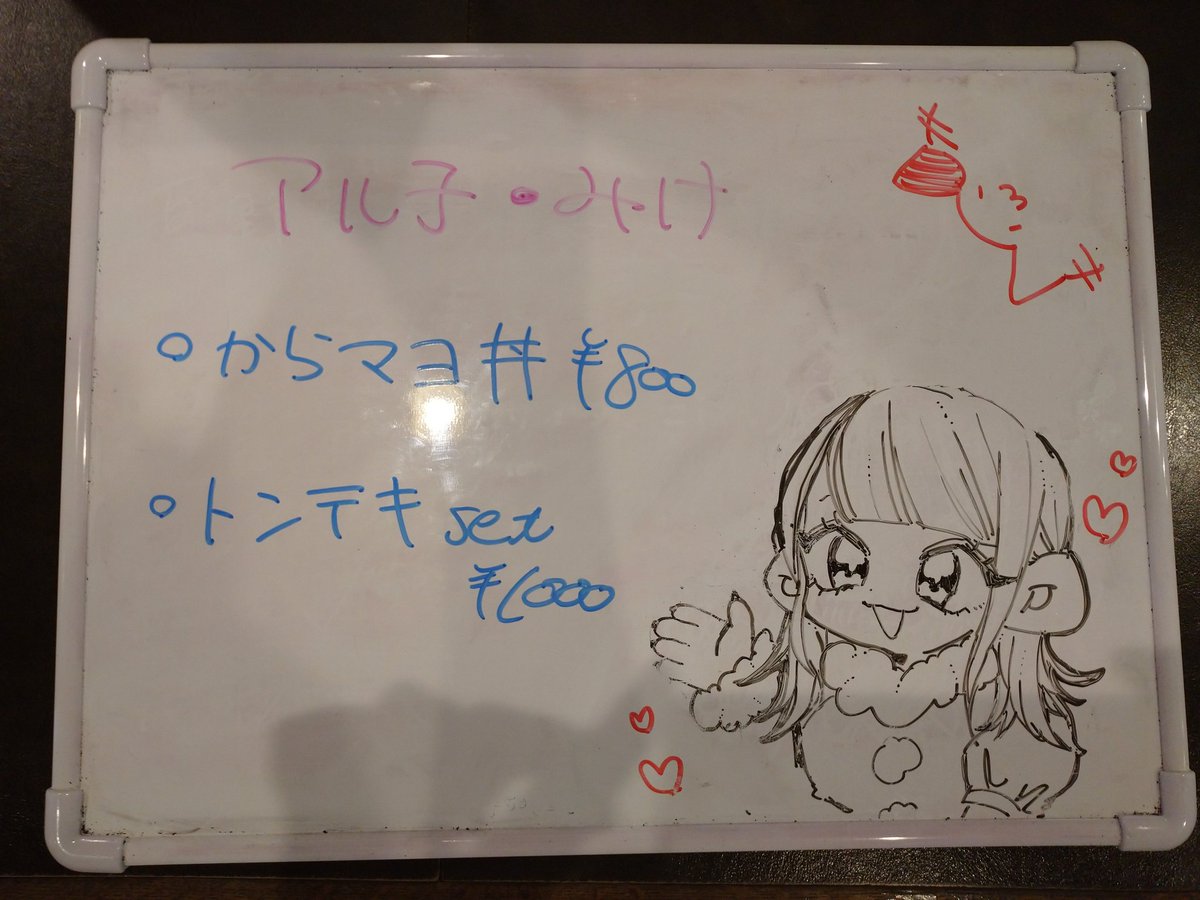 アル子・みけ
○からマヨ丼 ¥800
○トンテキset
¥1000